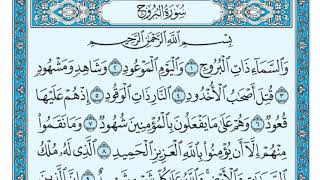 سُورَةُ البُرُوجِ
بِسْمِ اللَّهِ الرَّحْمَٰنِ الرَّحِيمِ
وَالسَّمَاءِ ذَاتِ الْبُرُوجِ ١ وَالْيَوْمِ الْمَوْعُودِ ٢ وَشَاهِدٍ وَمَشْهُودٍ
٣ قُتِلَ أَصْحَابُ الْأُخْدُودِ ٤ النَّارِ ذَاتِ الْوَقُودِ ٥ إِذْ هُمْ عَلَيْهَا
قُعُودٌ ٦ وَهُمْ عَلَىٰ مَا يَفْعَلُونَ بِالْمُؤْمِنِينَ شُهُودٌ ٧ وَمَا نَقَمُوا
مِنْهُمْ إِلَّا أَنْ يُؤْمِنُوا بِاللَّهِ الْعَزِيزِ الْحَمِيدِ ٨ الَّذِي لَهُ مُلْكُ